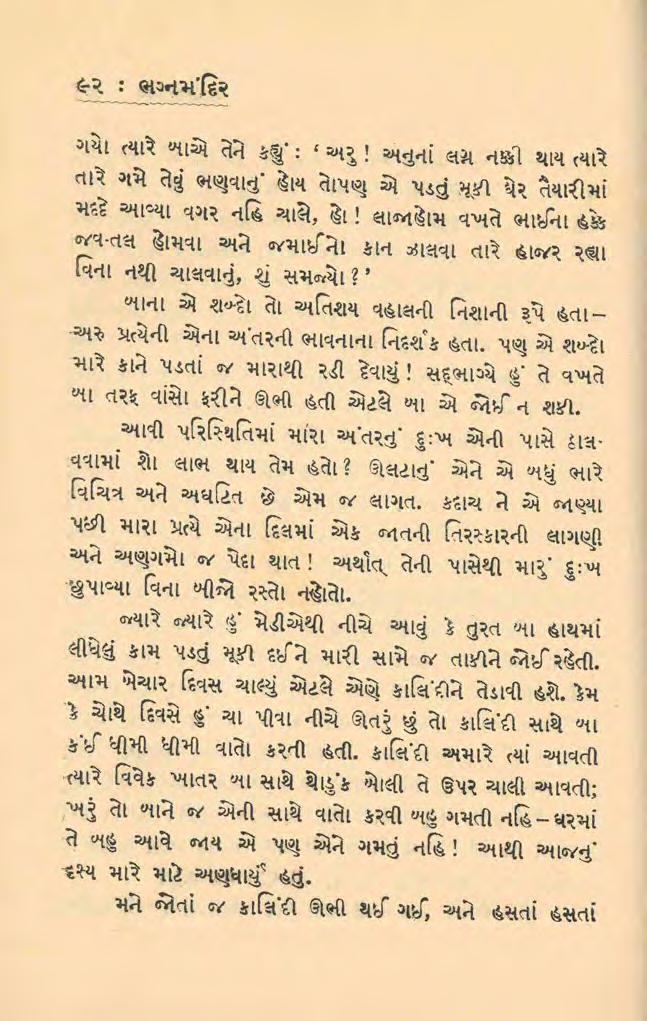 ૯૨ : ભગ્નમંદિર
ગયો ત્યારે બાએ તેને કહ્યું : ‘ અરુ ! અનુનાં લગ્ન નક્કી થાય ત્યારે
તારે ગમે તેવું ભણવાનું હોય તોપણ એ પડતું મૂકી ઘેર તૈયારીમાં
મદદે આવ્યા વગર નહિ ચાલે, હો ! લાજાહોમ વખતે ભાઈના હક્કે
જવ-તલ હોમવા અને જમાઈનો કાન ઝાલવા તારે હાજર રહ્યા
વિના નથી ચાલવાનું, શું સમજ્યો ? ’
બાના એ શબ્દો તો અતિશય વહાલની નિશાની રૂપે હતા –
અરુ પ્રત્યેની એના અંતરની ભાવનાના નિદર્શક હતા. પણ એ શબ્દો
મારે કાને પડતાં જ મારાથી રડી દેવાયું ! સદ્ભાગ્યે હું તે વખતે
બા તરફ વાંસો ફરીને ઊભી હતી એટલે બા એ જોઈ ન શકી.
આવી પરિસ્થિતિમાં મારા અંતરનું દુઃખ એની પાસે ઠાલ-
વવામાં શો લાભ થાય તેમ હતો ? ઊલટાનું એને એ બધું ભારે
વિચિત્ર અને અઘટિત છે એમ જ લાગત. કદાચ ને એ જાણ્યા
પછી મારા પ્રત્યે એના દિલમાં એક જાતની તિરસ્કારની લાગણી
અને અણગમો જ પેદા થાત ! અર્થાત્ તેની પાસેથી મારું દુઃખ
છુપાવ્યા વિના બીજો રસ્તો નહોતો.
જ્યારે જ્યારે હું મેડીએથી નીચે આવું કે તુરત બા હાથમાં
લીધેલું કામ પડતું મૂકી દઈને મારી સામે જ તાકીને જોઈ રહેતી.
આમ બેચાર દિવસ ચાલ્યું એટલે એણે કાલિંદીને તેડાવી હશે. કેમ
કે ચોથે દિવસે હું ચા પીવા નીચે ઊતરું છું તો કાલિંદી સાથે બા
કંઈ ધીમી ધીમી વાતો કરતી હતી. કાલિંદી અમારે ત્યાં આવતી
ત્યારે વિવેક ખાતર બા સાથે થોડુંક બોલી તે ઉપર ચાલી આવતી;
ખરું તો બાને જ એની સાથે વાતો કરવી બહુ ગમતી નહિ – ઘરમાં
તે બહુ આવે જાય એ પણ એને ગમતું નહિ ! આથી આજનું
દૃશ્ય મારે માટે અણધાર્યું હતું.
મને જોતાં જ કાલિંદી ઊભી થઈ ગઈ, અને હસતાં હસતાં